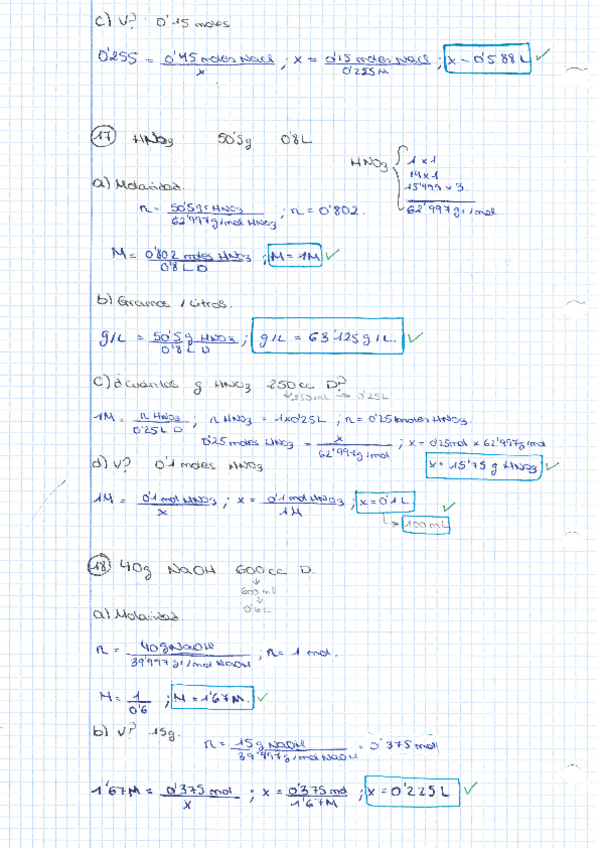 c) V? 0'15 moles
0'255 = 0'15 moles NaCl / x ; x = 0'15 moles NaCl / 0'225M ; x = 0'588 L
17 HNO3 50'5g 0'8L
HNO3 { 1 x 1
14 x 1
15'999 x 3
62'997 g/mol
a) Molaridad.
n = 50'5 g HNO3 / 62'997 g/mol HNO3 ; n = 0'802.
M = 0'802 moles HNO3 / 0'8 L D ; M = 1M
b) Gramos / Litros.
g/L = 50'5 g HNO3 / 0'8 L D ; g/L = 63'125 g/L.
c) ¿cuántos g HNO3 250cc D?
250mL → 0'25L
1M = n HNO3 / 0'25L D ; n HNO3 = 1x0'25L ; n = 0'25 moles HNO3.
0'25 moles HNO3 = x / 62'997 g/mol ; x = 0'25mol x 62'997g/mol
x = 15'75 g HNO3
d) V? 0'1 moles HNO3
1M = 0'1 mol HNO3 / x ; x = 0'1 mol HNO3 / 1M ; x = 0'1L
↳ 100mL
18 40g NaOH 600cc D.
600ml
0'6L
a) Molaridad.
n = 40g NaOH / 39'997 g/mol NaOH ; n = 1 mol.
M = 1 / 0'6 ; M = 1'67M.
b) V? 15g.
n = 15g NaOH / 39'997g/mol NaOH = 0'375 mol
1'67M = 0'375 mol / x ; x = 0'375 mol / 1'67M ; x = 0'225L